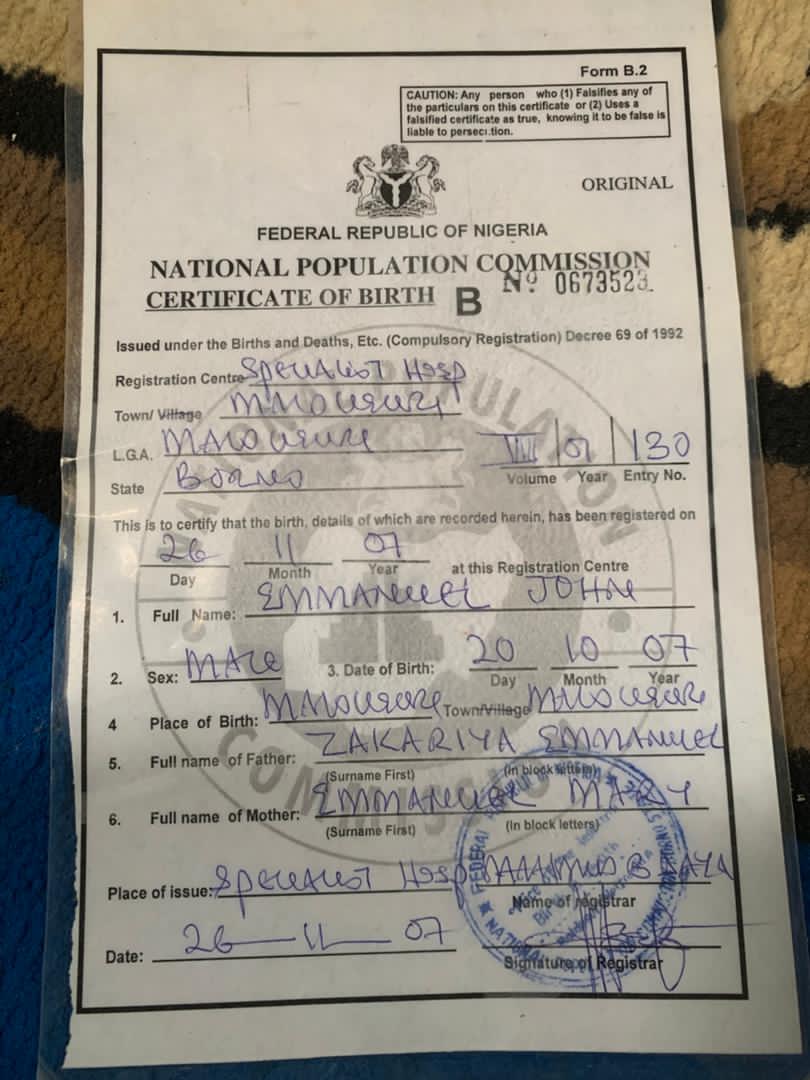 Form B.2
CAUTION: Any person who (1) Falsifies any of
the particulars on this certificate or (2) Uses a
falsified certificate as true, knowing it to be false is
liable to persecution.
ORIGINAL
FEDERAL REPUBLIC OF NIGERIA
NATIONAL POPULATION COMMISSION
CERTIFICATE OF BIRTH B Nº 0673523
Issued under the Births and Deaths, Etc. (Compulsory Registration) Decree 69 of 1992
Registration Centre Specialist Hosp
Town/ Village
L.G.A.
State Borno
VIII 07 130
Volume Year Entry No.
This is to certify that the birth, details of which are recorded herein, has been registered on
26 11 07
Day Month Year at this Registration Centre
1. Full Name: EMMANUEL JOHN
2. Sex: MALE 3. Date of Birth: 20 10 07
Day Month Year
4 Place of Birth: Town/Village
5. Full name of Father: ZAKARIYA EMMANUEL
(Surname First) (in block letters)
6. Full name of Mother: EMMANUEL MARY
(Surname First) (in block letters)
Place of issue: Specialist Hosp
Name of registrar
Date: 26 - 11 - 07
Signature of Registrar
NATIONAL POPULATION COMMISSION